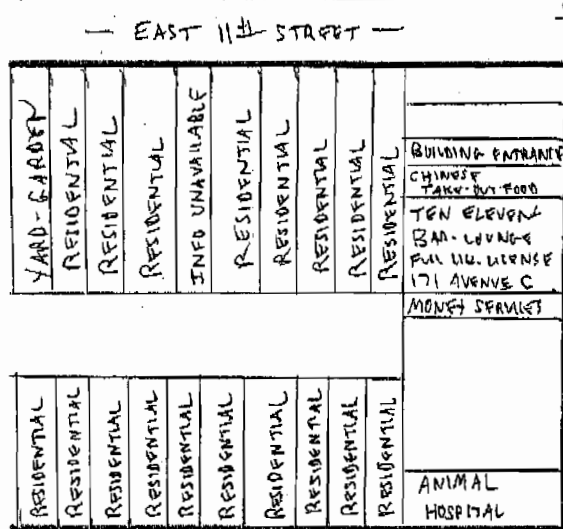 — EAST 11TH STREET —
YARD-GARDEN
RESIDENTIAL
RESIDENTIAL
RESIDENTIAL
INFO UNAVAILABLE
RESIDENTIAL
RESIDENTIAL
RESIDENTIAL
RESIDENTIAL
RESIDENTIAL
BUILDING ENTRANCE
CHINESE
TAKE-OUT FOOD
TEN ELEVEN
BAR-LOUNGE
FULL LIQ. LICENSE
171 AVENUE C
MONEY SERVICES
RESIDENTIAL
RESIDENTIAL
RESIDENTIAL
RESIDENTIAL
RESIDENTIAL
RESIDENTIAL
RESIDENTIAL
RESIDENTIAL
RESIDENTIAL
RESIDENTIAL
ANIMAL
HOSPITAL